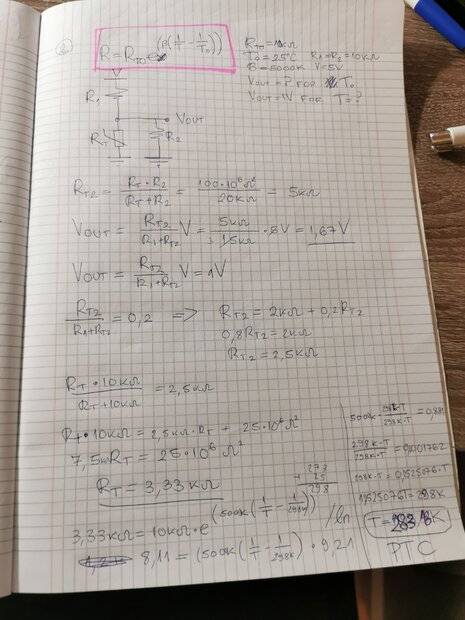 2)
R = R_T0 e^(B(1/T - 1/T0))
R_T0 = 10kΩ
T0 = 25°C R1=R2=10kΩ
B = 5000K V=5V
VOUT = ? FOR T0
VOUT = 1V FOR T = ?
V
R1
VOUT
RT
R2
R_T2 = (RT · R2)/(RT + R2) = (100·10⁶Ω²)/(20kΩ) = 5kΩ
VOUT = R_T2/(R1+R_T2) V = 5kΩ/15kΩ · 5V = 1,67V
VOUT = R_T2/(R1+R_T2) V = 1V
R_T2/(R1+R_T2) = 0,2 => R_T2 = 2kΩ + 0,2R_T2
0,8R_T2 = 2kΩ
R_T2 = 2,5kΩ
(RT · 10kΩ)/(RT + 10kΩ) = 2,5kΩ
RT · 10kΩ = 2,5kΩ · RT + 25·10⁶Ω²
7,5kRT = 25·10⁶Ω²
RT = 3,33kΩ
273
+ 25
298
3,33kΩ = 10kΩ · e^(500K(1/T - 1/298K)) /ln
8,11 = (500K(1/T - 1/298K)) · 9,21
500K · (298K-T)/(298K·T) = 0,881
298K = 0,1525076·T
T = K
PTC